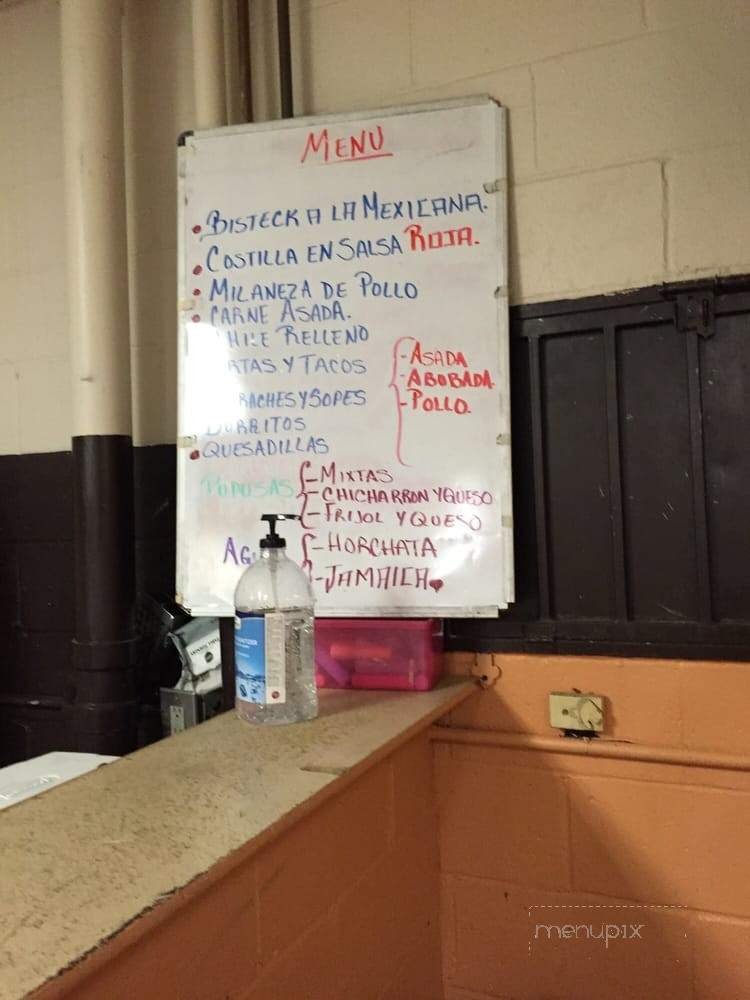 MENU
BISTECK A LA MEXICANA.
COSTILLA EN SALSA ROJA.
MILANEZA DE POLLO
CARNE ASADA.
CHILE RELLENO
RTAS Y TACOS
RACHES Y SOPES
BURRITOS
QUESADILLAS
- ASADA
- ABOBADA
- POLLO.
PUPUSAS
- MIXTAS
- CHICHARRON Y QUESO
- FRIJOL Y QUESO
AG
- HORCHATA
- JAMAICA
menupix